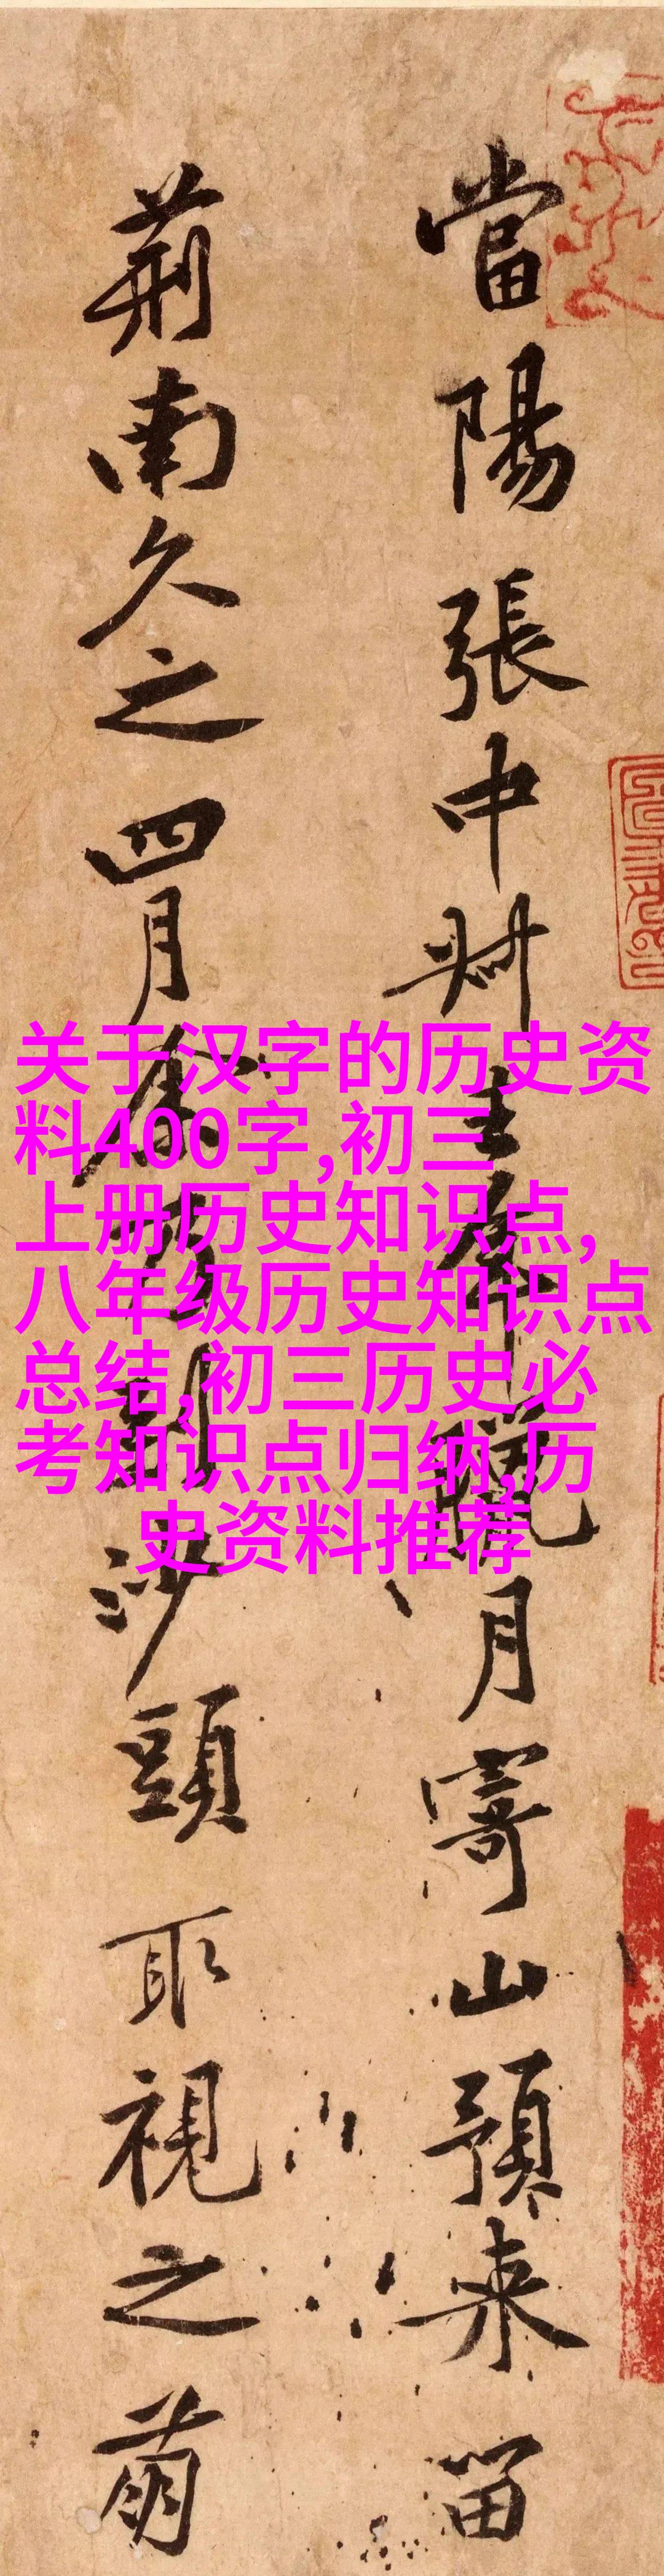 當陽張中叔去年臘月寄山預来留
荊南久之四月余乃到沙頭取視之萌
关于汉字的历史资
料400字,初三
上册历史知识点,
八年级历史知识点
总结,初三历史必
考知识点归纳,历
史资料推荐